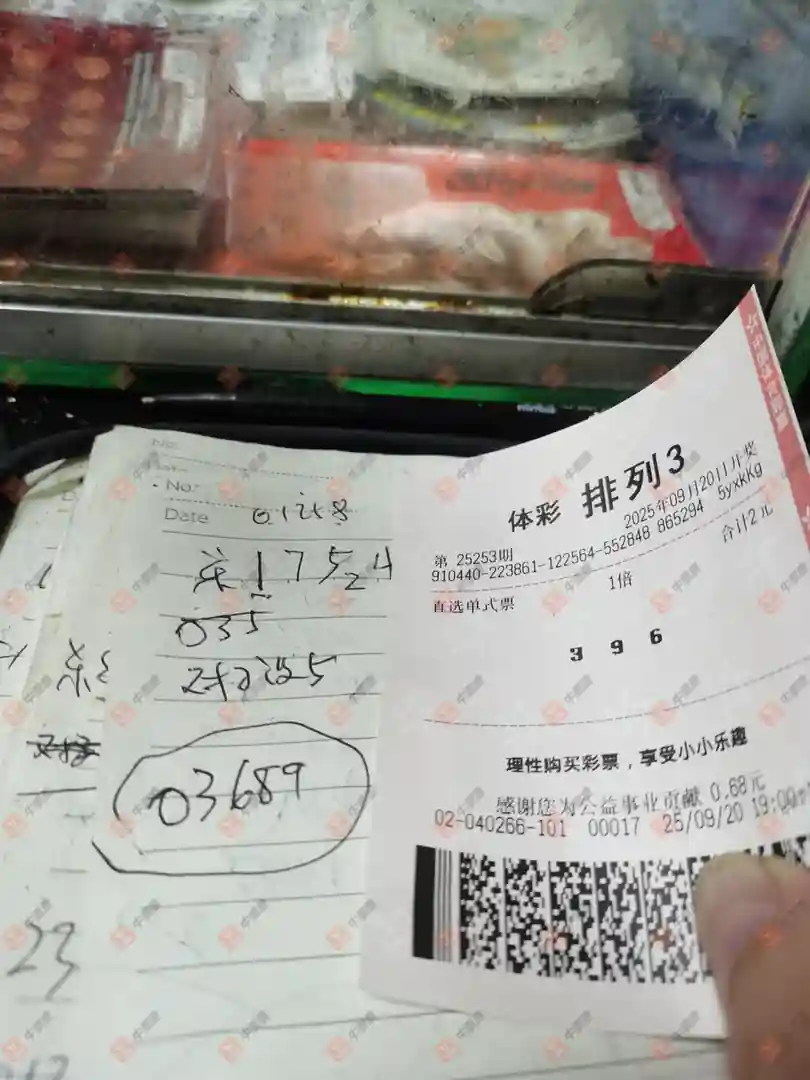 No:
Date 01268
17524
035
03689
23
体彩 排列3
2025年09月20日开奖
第 25253期
910440-223861-122564-552848 865294 5yxkKg
直选单式票 1倍 合计2元
3 9 6
理性购买彩票，享受小小乐趣
感谢您为公益事业贡献 0.68元
02-040266-101 00017 25/09/20 19:00